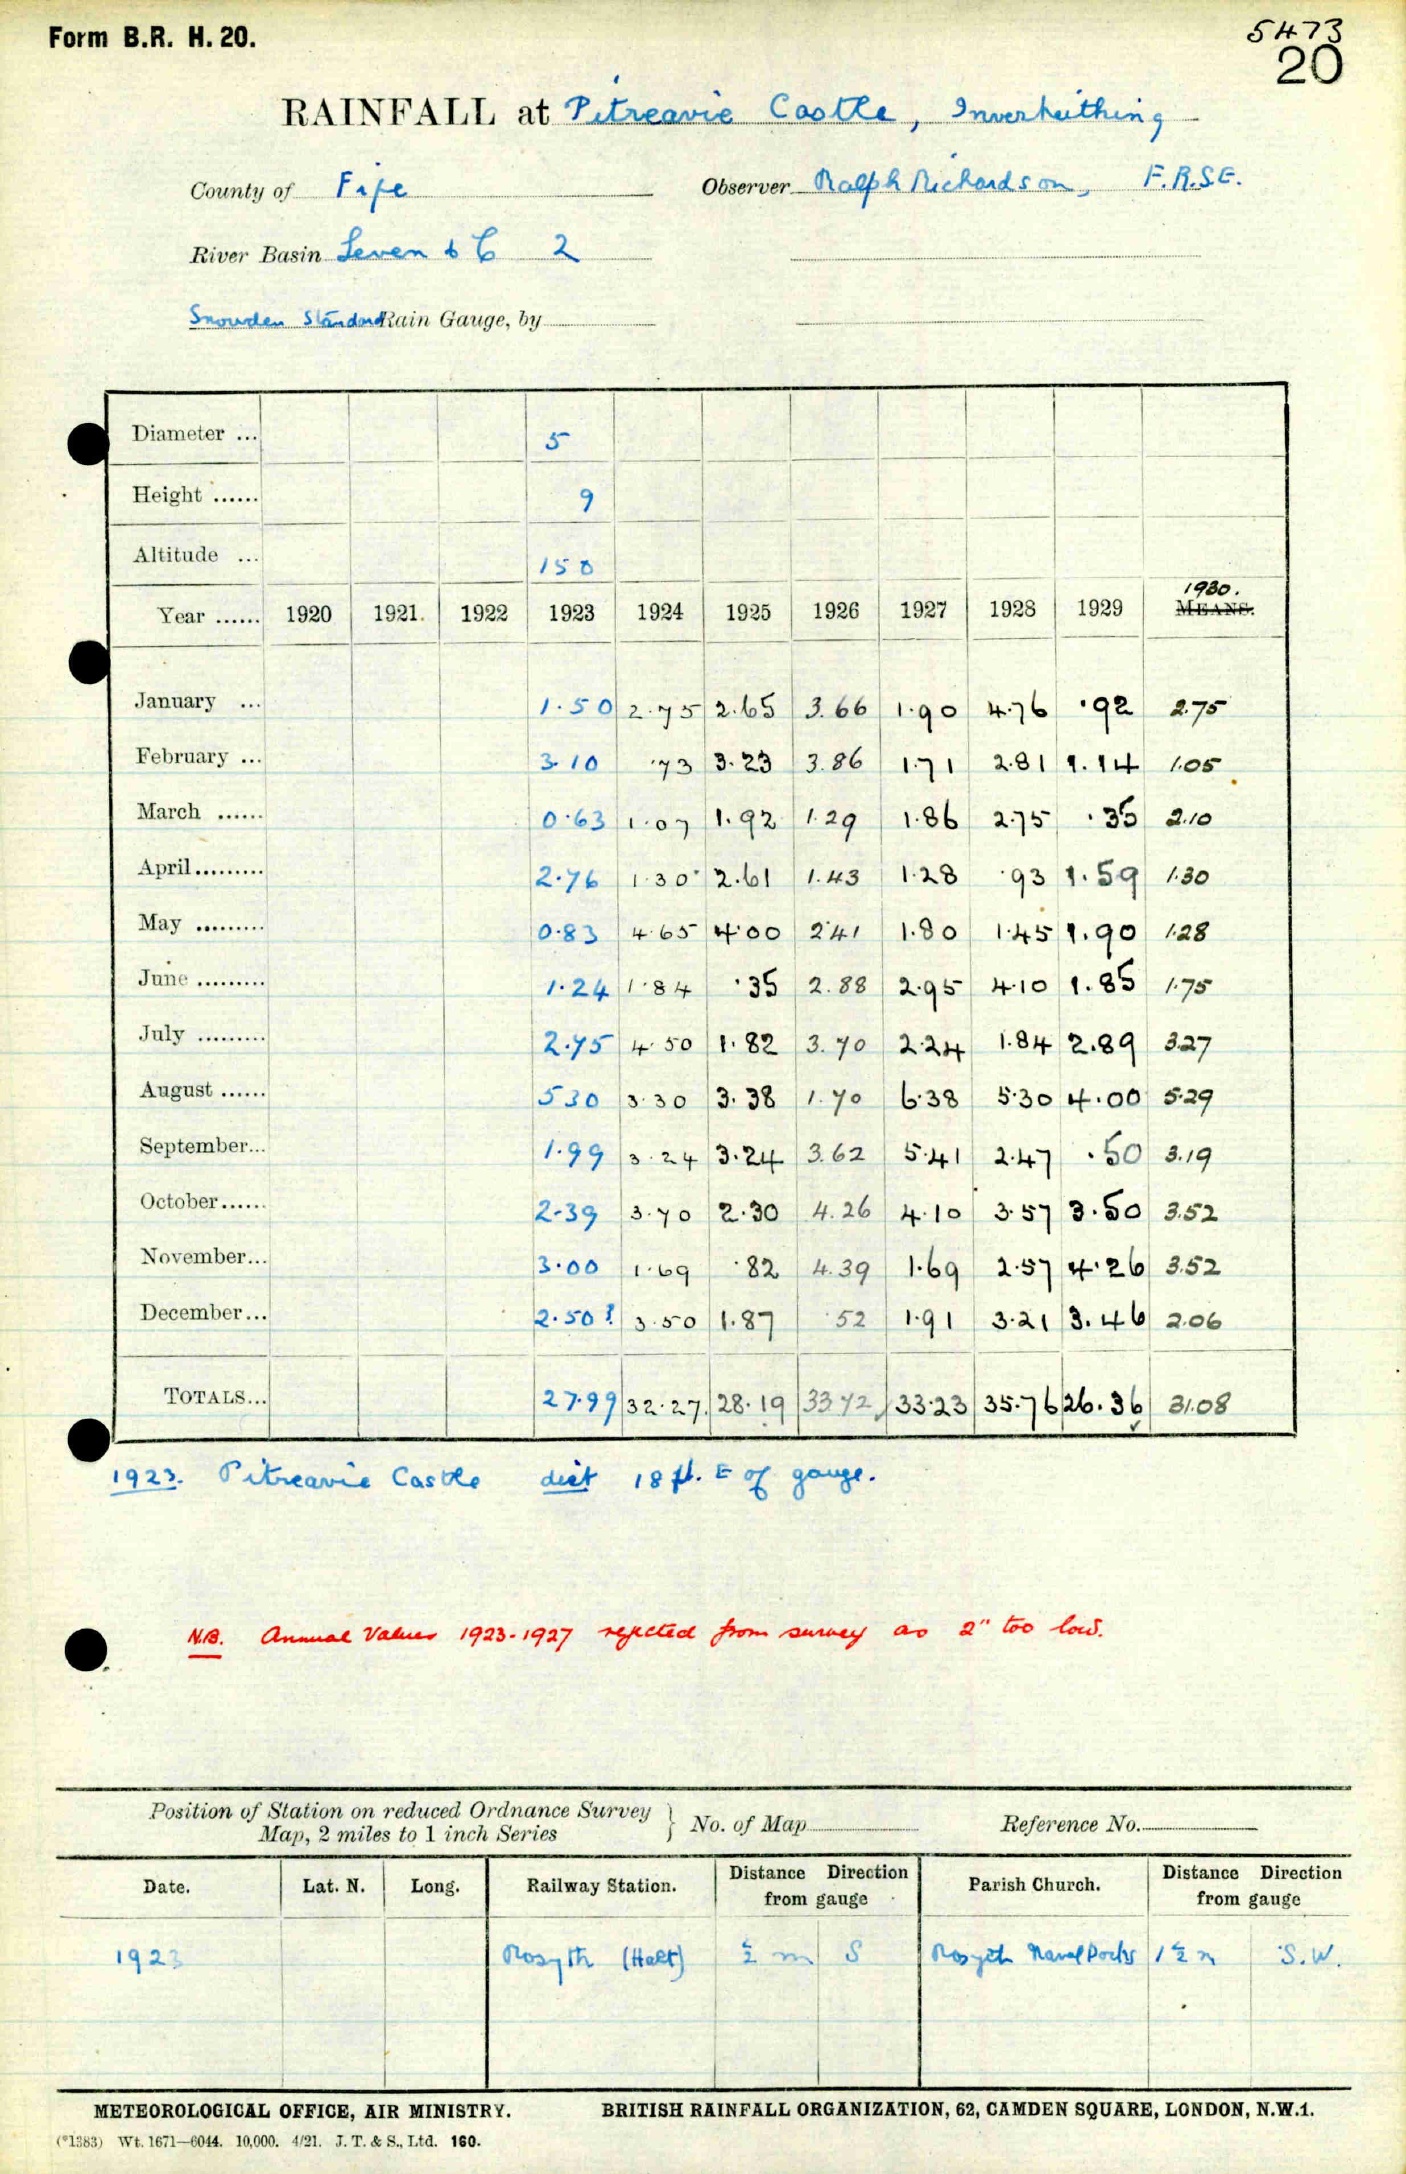 Form B.R. H. 20.
5473
20
RAINFALL at Pitreavie Castle, Inverkeithing
County of Fife Observer Ralph Richardson, F.R.S.E.
River Basin Leven to 2
Snowden Standard Rain Gauge, by
Diameter ... 5
Height ...... 9
Altitude ... 150
1930.
Year ...... 1920 1921. 1922 1923 1924 1925 1926 1927 1928 1929 MEANS.
January ... 1.50 2.75 2.65 3.66 1.90 4.76 .92 2.75
February ... 3.10 .73 3.23 3.86 1.71 2.81 1.14 1.05
March ...... 0.63 1.07 1.92 1.29 1.86 2.75 .35 2.10
April......... 2.76 1.30 2.61 1.43 1.28 .93 1.59 1.30
May ......... 0.83 4.65 4.00 2.41 1.80 1.45 1.90 1.28
June ......... 1.24 1.84 .35 2.88 2.95 4.10 1.85 1.75
July ......... 2.75 4.50 1.82 3.70 2.24 1.84 2.89 3.27
August ...... 5.30 3.30 3.38 1.70 6.38 5.30 4.00 5.29
September... 1.99 3.24 3.24 3.62 5.41 2.47 .50 3.19
October...... 2.39 3.70 2.30 4.26 4.10 3.57 3.50 3.52
November... 3.00 1.69 .82 4.39 1.69 2.57 4.26 3.52
December... 2.50? 3.50 1.87 .52 1.91 3.21 3.46 2.06
TOTALS... 27.99 32.27 28.19 33.72 33.23 35.76 26.36 31.08
1923. Pitreavie Castle dist 18 ft. E of gauge.
N.B. Annual Values 1923-1927 rejected from survey as 2" too low.
Position of Station on reduced Ordnance Survey
Map, 2 miles to 1 inch Series } No. of Map Reference No.
Date. Lat. N. Long. Railway Station. Distance Direction from gauge Parish Church. Distance Direction from gauge
1923 Rosyth (Halt) ½ m S Rosyth Naval Docks 1½ m S.W.
METEOROLOGICAL OFFICE, AIR MINISTRY. BRITISH RAINFALL ORGANIZATION, 62, CAMDEN SQUARE, LONDON, N.W.1.
(*1383) Wt. 1671—6044. 10,000. 4/21. J. T. & S., Ltd. 160.